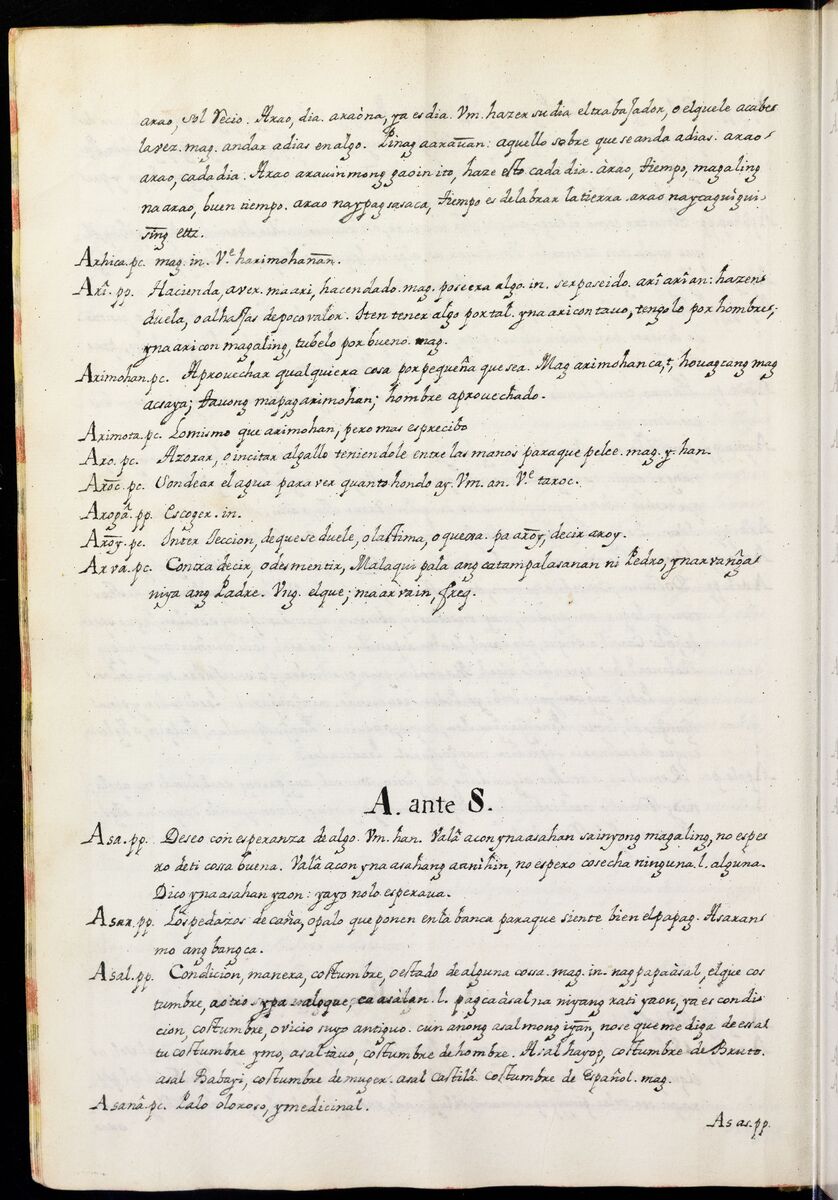 arao, sol Vècio. Arao, dia. araòna, ya es dia. Vm. hazer su dia el trabajador, o el que le acabe
la vez. mag. andar a dias en algo. Pinag aarauan: aquello sobre que se anda a dias. arao
arao, cada dia. Arao arauin mong gaoin ito, haze esto cada dia. àrao, tiempo, magaling
na arao, buen tiempo. arao nay pag sasaca, tiempo es de labrar la tierra. arao nay caguiigui-
sing ettz.
Arhica. pc. mag. in. Ve harimohanan.
Arî. pp. Hacienda, aver. ma ari, hacendado. mag. poseera algo. in. ser poseido. arî arîan: hazen
duela, o alhajas de poco valor. Iten tener algo por tal. yna ari con tauo, tengolo por hombre;
yna ari con magaling, tubelo por bueno. mag.
Arimohan. pc. Aprovechar qualquiera cosa por pequeña que sea. Mag arimohan ca, t, houag cang mag
acsaya; tauong mapag arimohan; hombre aprovechado.
Arimota. pc. Lo mismo que arimohan, pero mas esprecibo
Aro. pc. Alzorar, o incitar al gallo teniendole entre las manos para que pelee. mag. y. han.
Aroc. pc. Sondear el agua para ver quanto hondo ay. Vm. an. Ve taroc.
Arogâ. pp. Escoger. in.
Aroy. pc. Inter Ieccion, de que se duele, o lastima, o quema. pa aroy, decir aroy.
Arva. pc. Contra decir, o desmentir, Malaqui pala ang catampalasanan ni Pedro, ynarvanga
niya ang Padre. Vng. el que; maarvain, freq.
A. ante S.
Asa. pp. Deseo con esperanza de algo. Vm. han. Valâ acon yna asahan sa inyong magaling, no espe
ro de ti cossa buena. Valâ acon yna asahang aanihin, no espero cosecha ninguna. l. alguna.
Dico yna asahan yaon: yayo no lo esperaua.
Asar. pp. Los pedazos de caña, o palo que ponen enla banca para que siente bien el papag. Asaran
mo ang bangca.
Asal. pp. Condicion, manera, costumbre, o estado de alguna cossa. mag. in. nag papaàsal, el que cos
tumbre, a otro ypa algque, ca asàlan. l. pagca àsal na niyang rati yaon, ya es condi
cion, costumbre, o vicio suyo antiguo. cun anong asal mong iyan, no se que me diga de essa
tu costumbre ymo, asal tàuo, costumbre de hombre. Asal hayop, costumbre de Bruto.
asal Babayi, costumbre de muger. asal Castilâ. costumbre de Español. mag.
Asanâ. pc. Palo oloroso, y medicinal.
As as. pp.